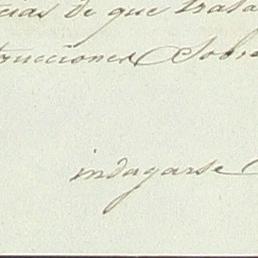 cias de que trata
trucciones sobre
indagarse